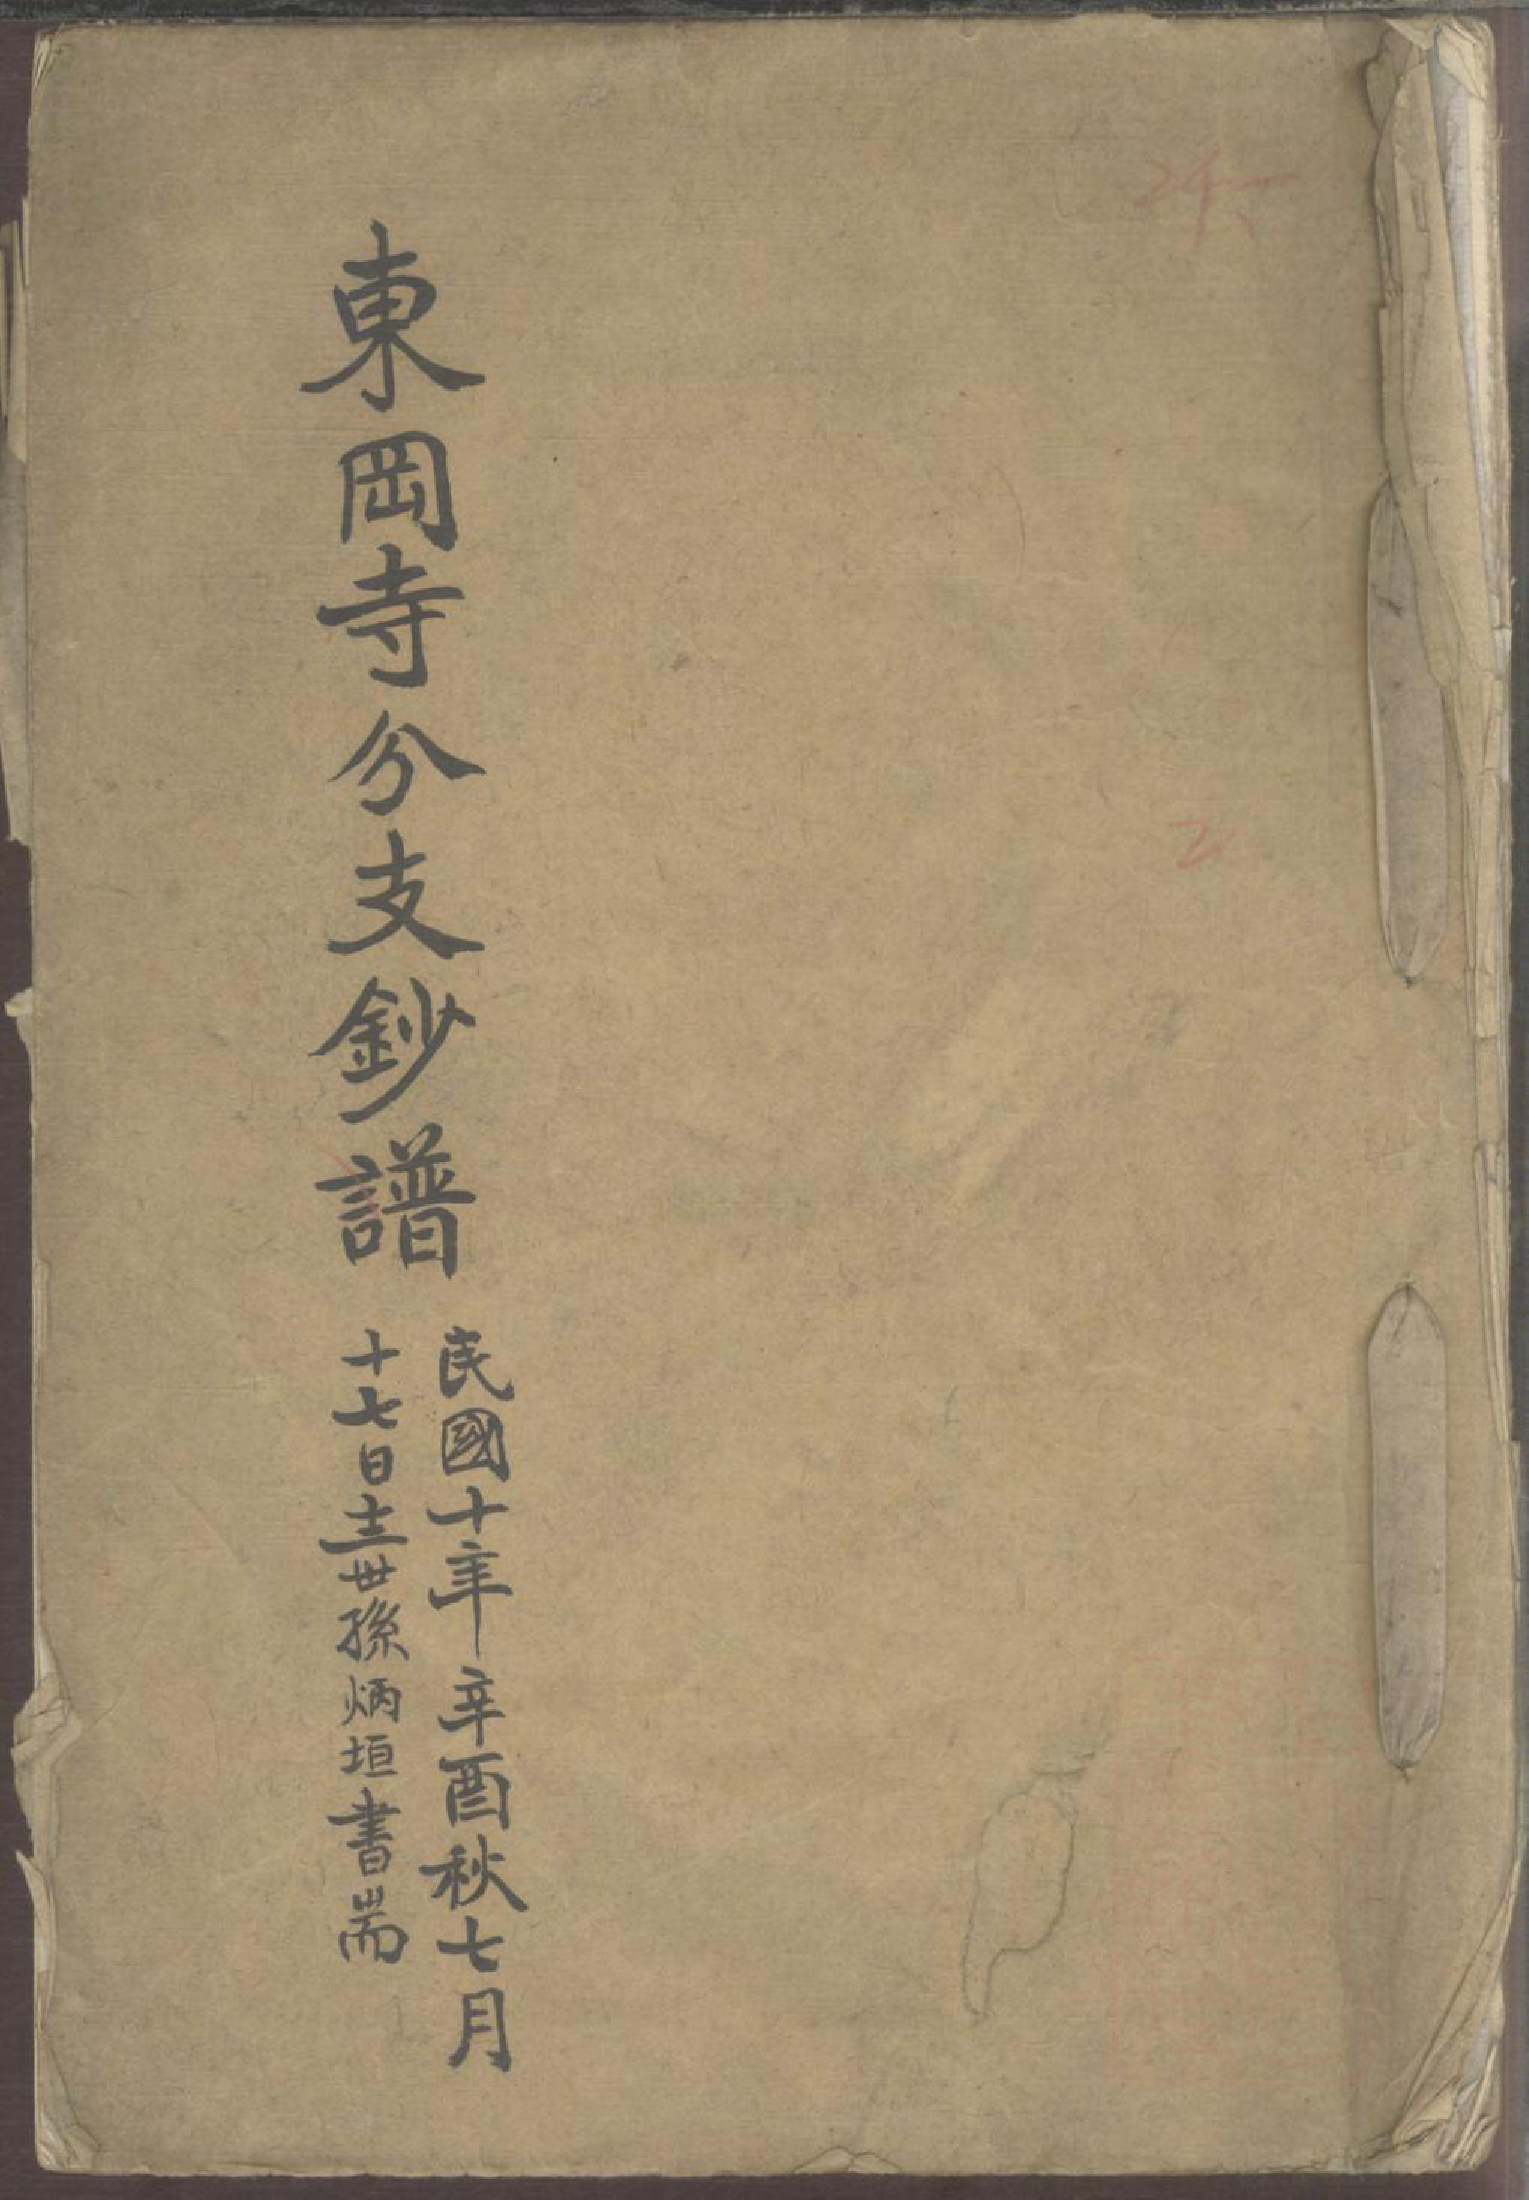 東岡寺分支鈔譜
民國十年辛酉秋七月
十七日十三世孫炳垣書耑
2